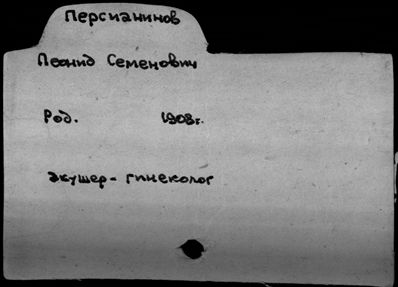 Персианинов
Леонид Семенович
Род. 1908г.
Акушер-гинеколог